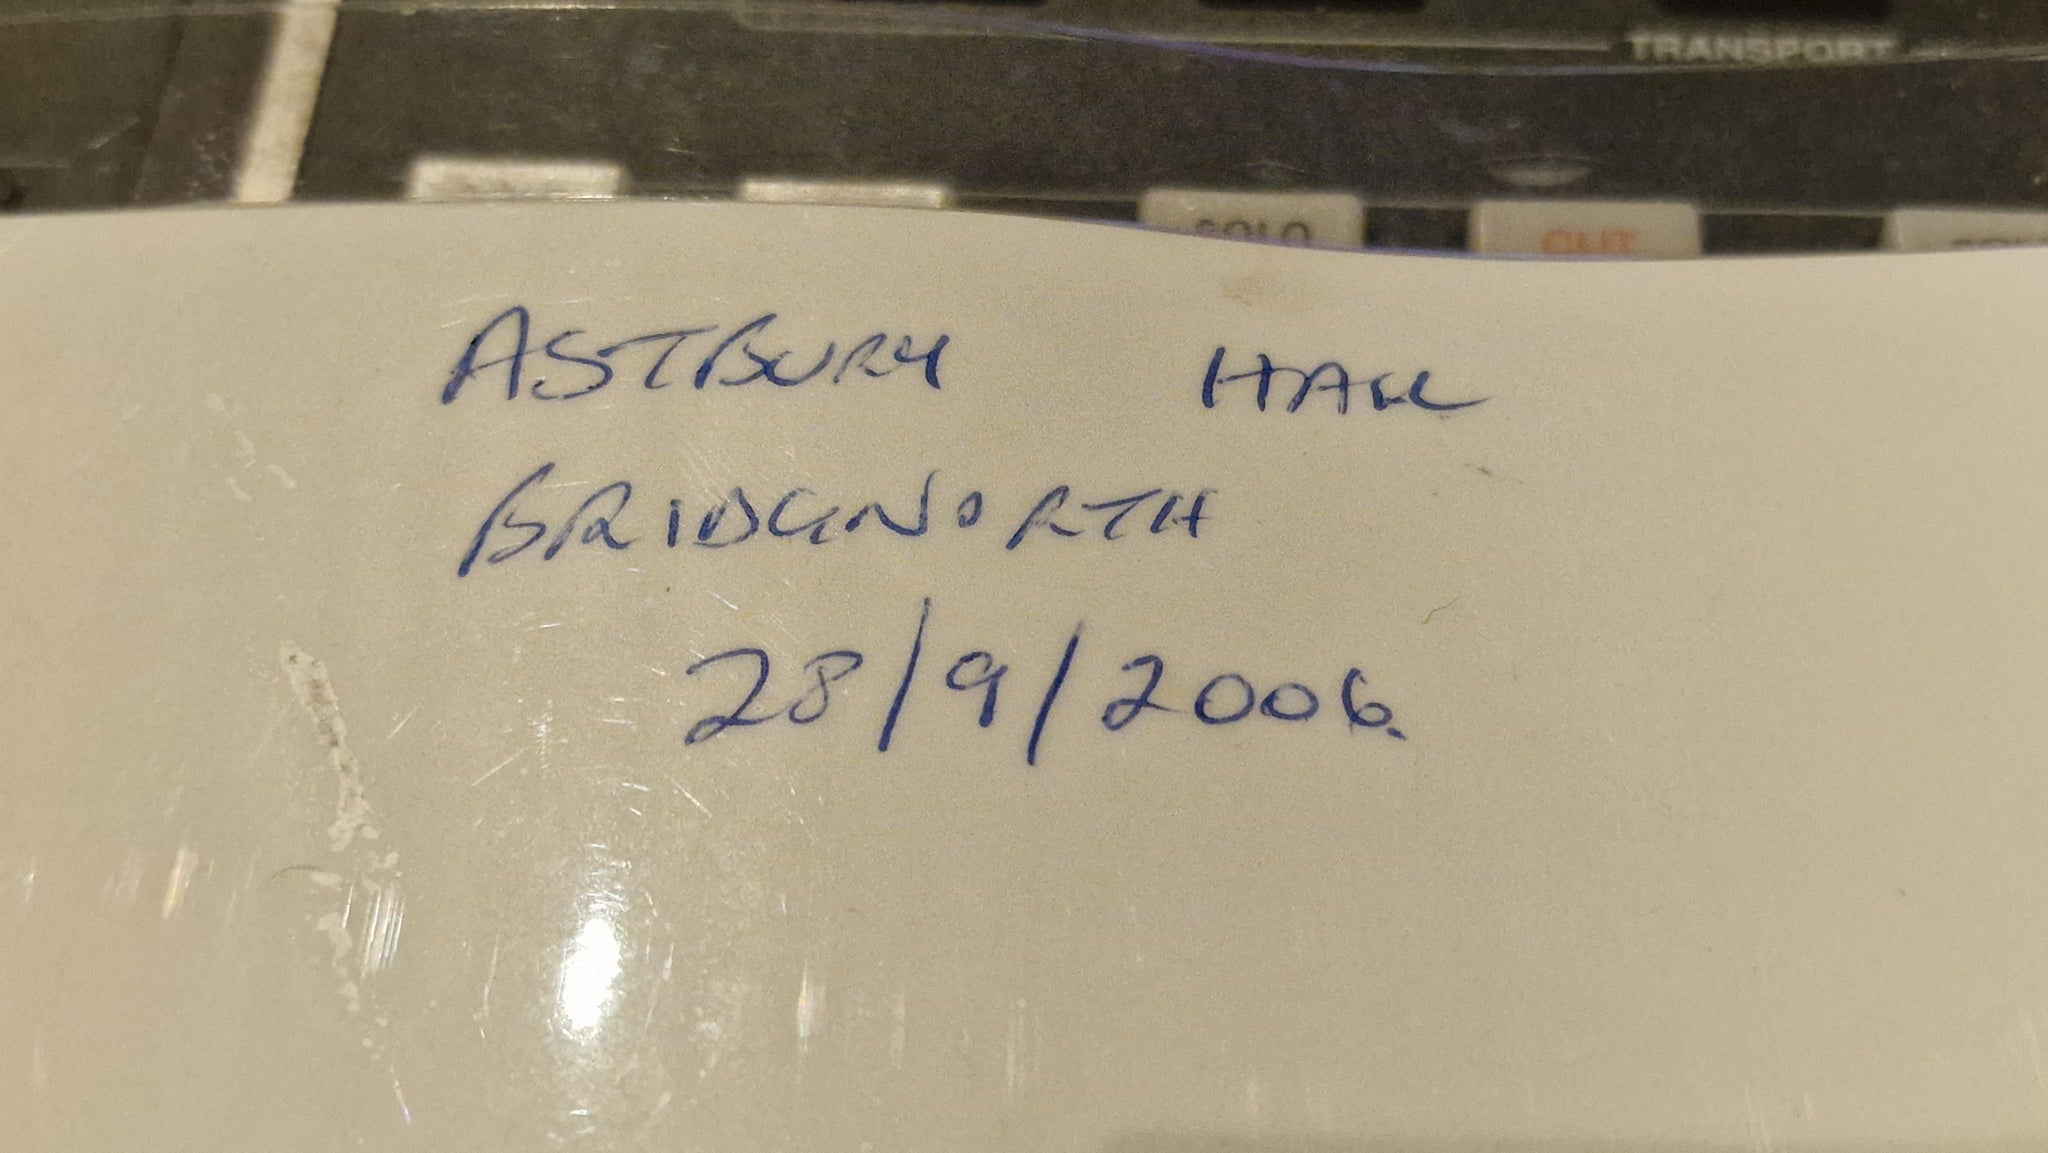 TRANSPORT
SOLO
CUT
ASTBURY HALL
BRIDGNORTH
28/9/2006.